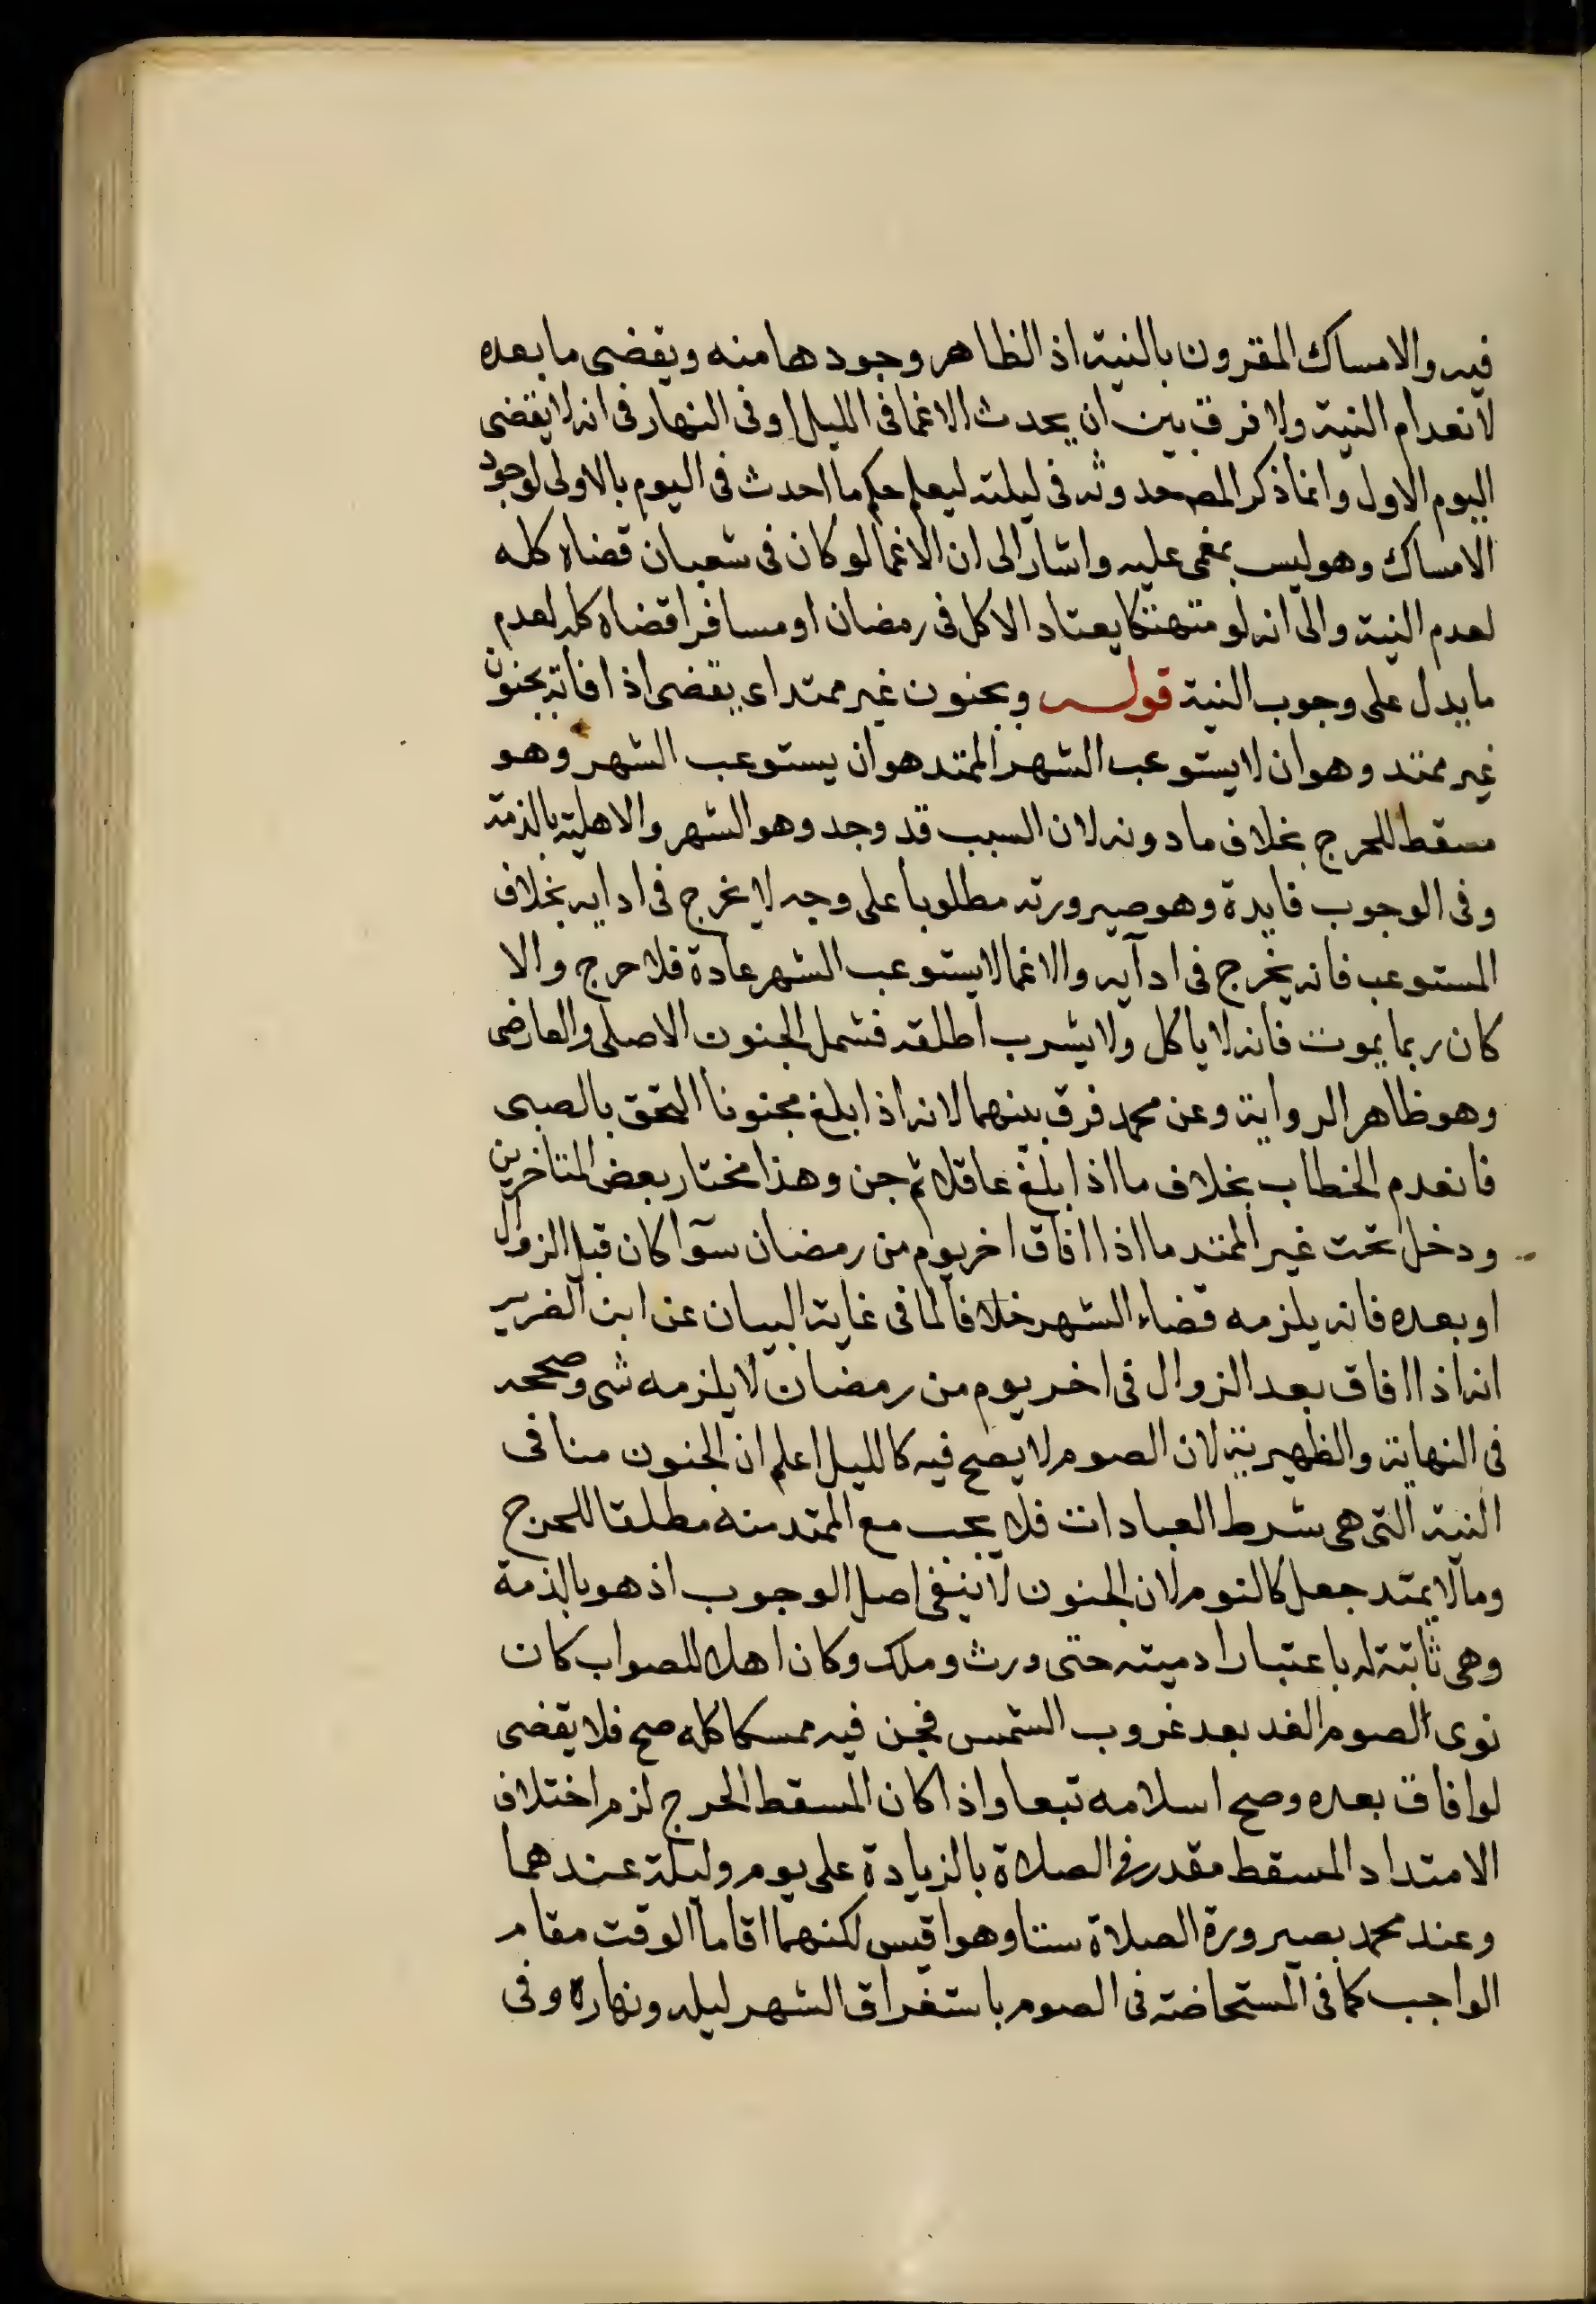 فيه والامساك المقرون بالنية اذ الظاهر وجودها منه ويقضى ما بعده
لانعدام النية ولا فرق بين ان يحدث الاغما فى الليل او فى النهار فى انه لا يقضى
اليوم الاول وانما ذكر المص حدوثه فى ليلته ليعلم حكم ما احدث فى اليوم بالاولى لوجود
الامساك وهو ليس بمغمى عليه واشار الى ان الاغما لو كان فى شعبان قضاه كله
لعدم النية والى انه لو متهتكا يعتاد الاكل فى رمضان او مسافرا قضاه كله لعدم
ما يدل على وجوب النية قوله وبجنون غير ممتد اى يقضى اذا فاته بجنون
غير ممتد وهو ان لا يستوعب الشهر الممتد هو ان يستوعب الشهر وهو
مسقط للحرج بخلاف ما دونه لان السبب قد وجد وهو الشهر والاهلية بالذمة
وفى الوجوب فايدة وهو صيرورته مطلوبا على وجه لا يحرج فى ادايه بخلاف
المستوعب فانه يحرج فى ادآيه والاغما لا يستوعب الشهر عادة فلا حرج والا
كان ربما يموت فانه لا ياكل ولا يشرب اطلقه فشمل الجنون الاصلى والعارضى
وهو ظاهر الرواية وعن محمد فرق بينهما لانه اذا بلغ مجنونا التحق بالصبى
فانعدم الخطاب بخلاف ما اذا بلغ عاقلا ثم جن وهذا مختار بعض المتاخرين
ودخل تحت غير الممتد ما اذا افاق اخر يوم من رمضان سوآ كان قبل الزوال
او بعده فانه يلزمه قضاء الشهر خلافا لما فى غاية البيان عن ابن الضرير
انه اذا افاق بعد الزوال فى اخر يوم من رمضان لا يلزمه شى وصححه
فى النهاية والظهيرية لان الصوم لا يصح فيه كالليل اعلم ان الجنون منافى
النية التى هى شرط العبادات فلا يجب مع الممتد منه مطلقا للحرج
وما لا يمتد جعل كالنوم لان الجنون لا ينفى اصل الوجوب اذ هو بالذمة
وهى ثابتة له باعتبار ادميته حتى ورث وملك وكان اهلا للصواب كان
نوى الصوم الغد بعد غروب الشمس فجن فيه ممسكا كله صح فلا يقضى
لو افاق بعده وصح اسلامه تبعا واذا كان المسقط الحرج لزم اختلاف
الامتداد المسقط مقدر فى الصلاة بالزيادة على يوم وليلة عندهما
وعند محمد بصيرورة الصلاة ستا وهو اقيس لكنهما اقاما الوقت مقام
الواجب كما فى المستحاضة فى الصوم باستغراق الشهر ليله ونهاره وفى